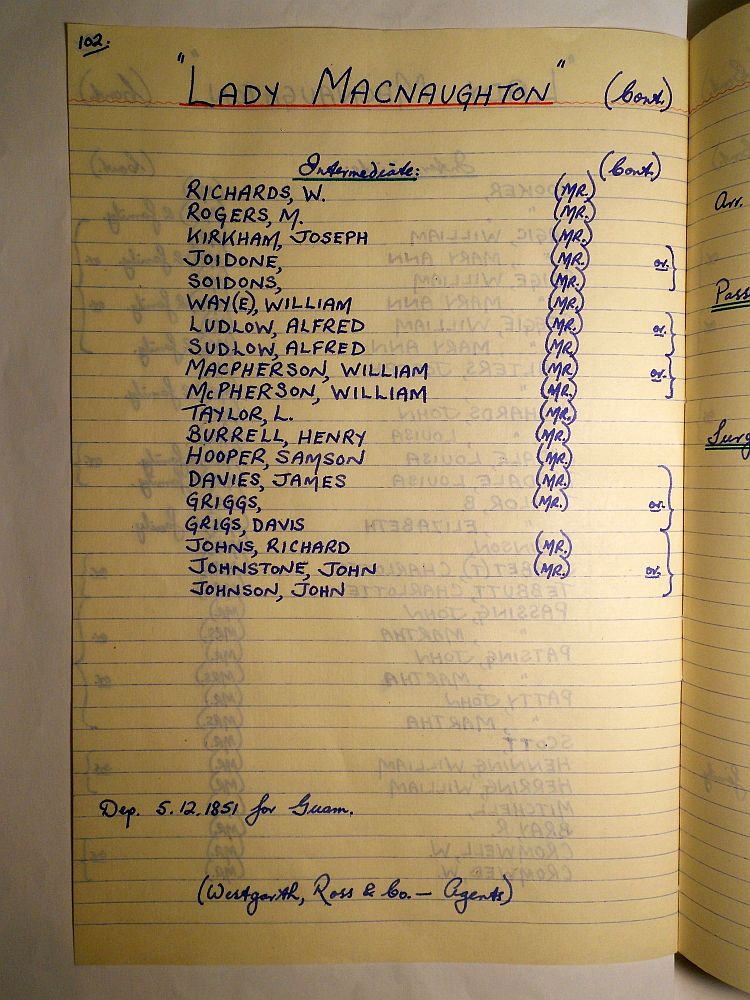 102.
"LADY MACNAUGHTON" (Cont.)
Intermediate: (Cont.)
RICHARDS, W. (MR.)
ROGERS, M. (MR.)
KIRKHAM, JOSEPH (MR.)
JOIDONE, (MR.) or.
SOIDONS, (MR.)
WAY(E), WILLIAM (MR.)
LUDLOW, ALFRED (MR.) or.
SUDLOW, ALFRED (MR.)
MACPHERSON, WILLIAM (MR.) or.
McPHERSON, WILLIAM (MR.)
TAYLOR, L. (MR.)
BURRELL, HENRY (MR.)
HOOPER, SAMSON (MR.)
DAVIES, JAMES (MR.)
GRIGGS, (MR.) or.
GRIGS, DAVIS
JOHNS, RICHARD (MR.)
JOHNSTONE, JOHN (MR.) or.
JOHNSON, JOHN
Dep. 5.12.1851 for Guam.
(Westgarth, Ross & Co. — Agents)
Arr.
Pass
Surg